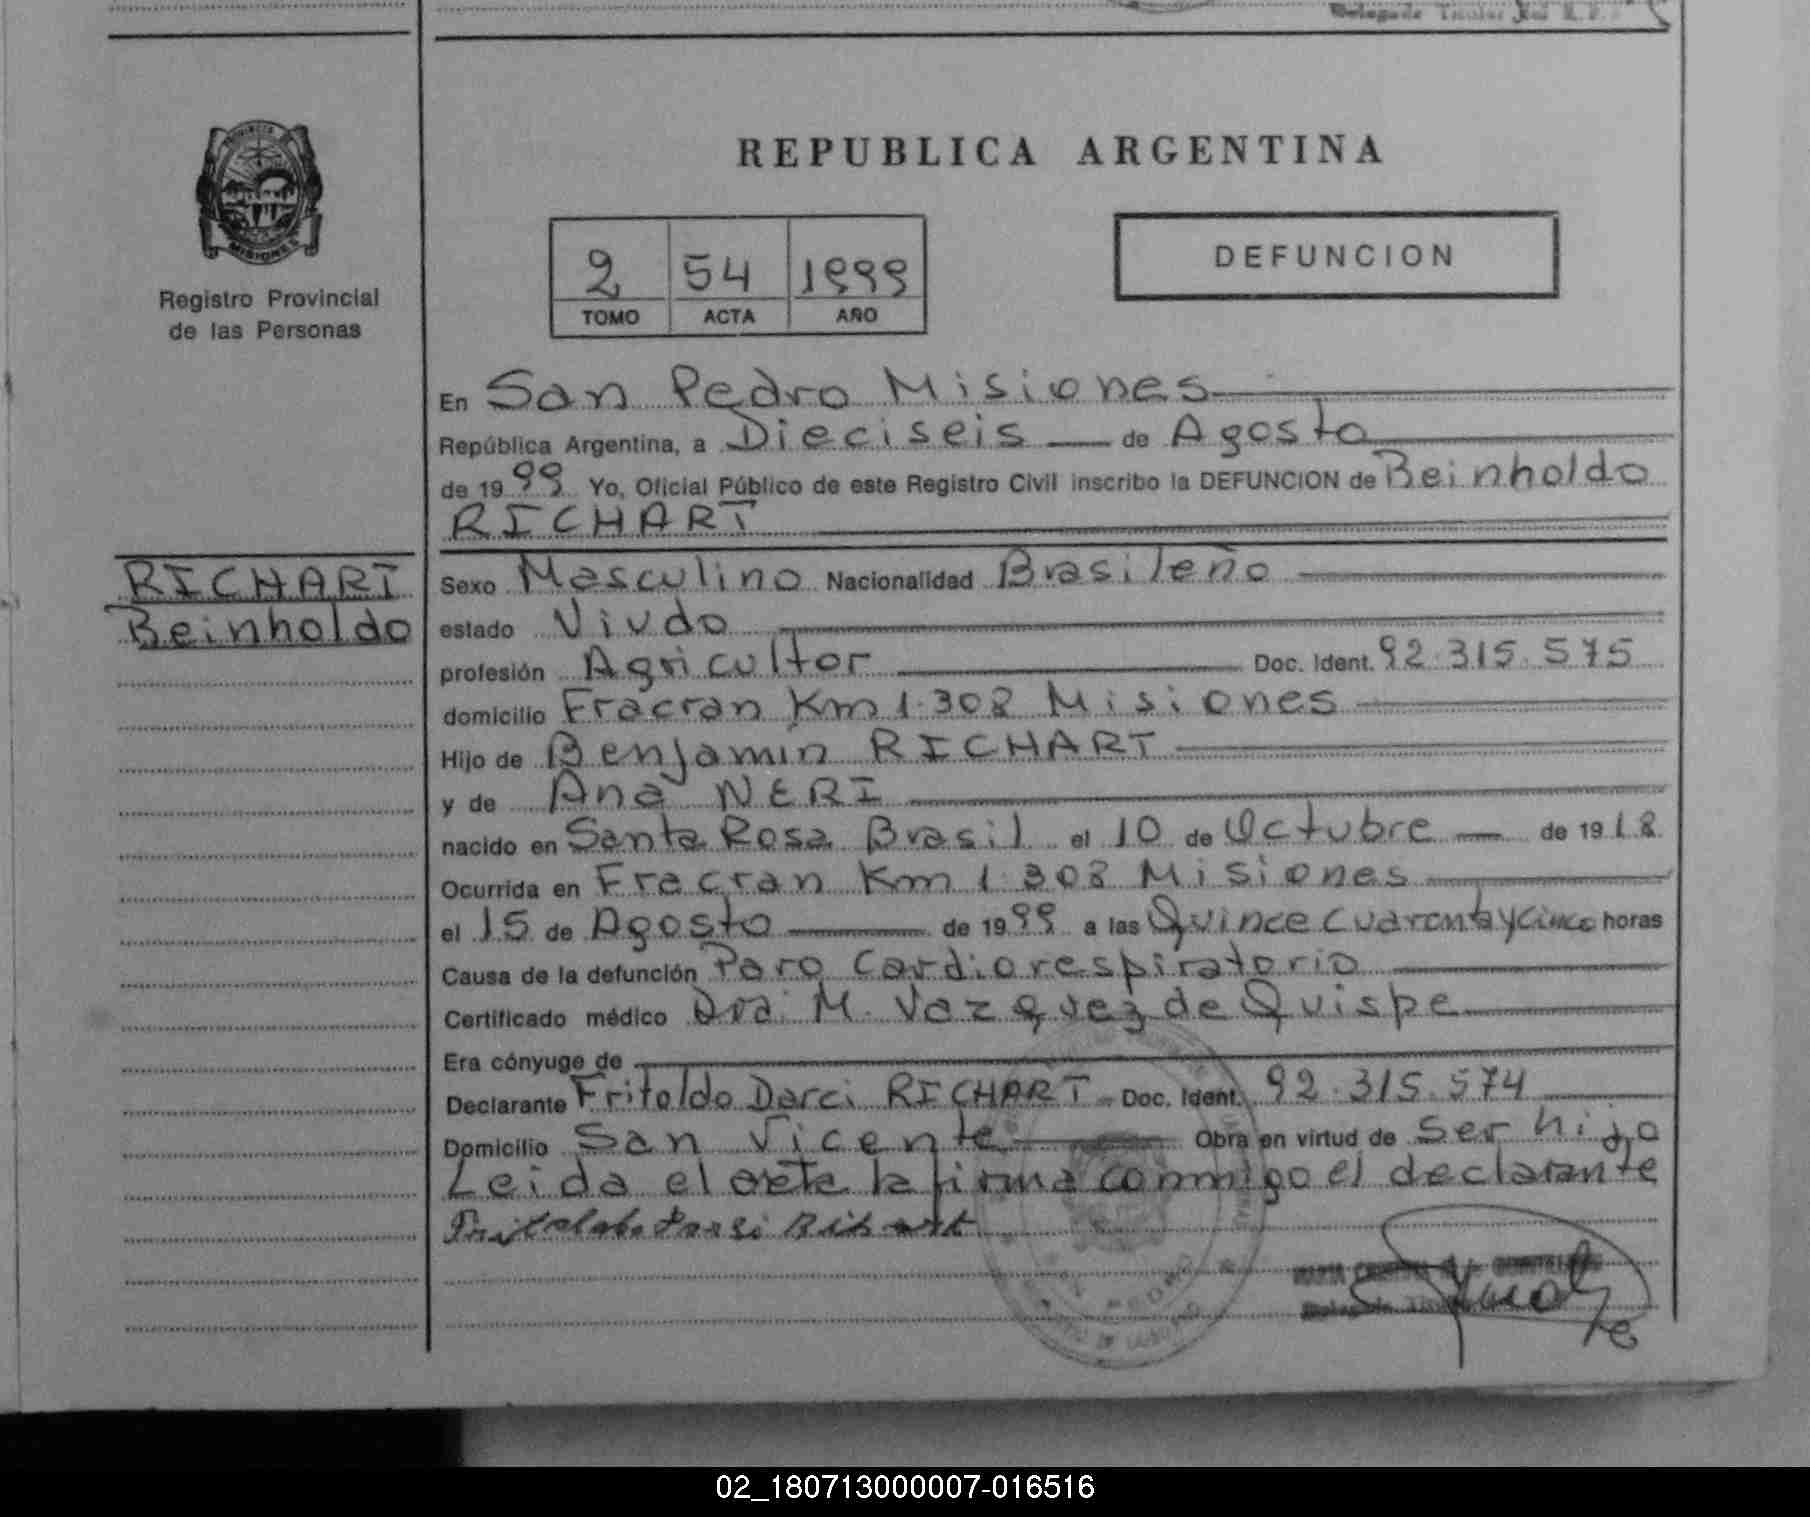 Delegada Titular
PROVINCIA DE
MISIONES
Registro Provincial
de las Personas
REPUBLICA ARGENTINA
2 54 1999
TOMO ACTA AÑO
DEFUNCION
En San Pedro Misiones
República Argentina, a Dieciseis de Agosto
de 1999 Yo, Oficial Público de este Registro Civil inscribo la DEFUNCION de Beinholdo
RICHART
RICHART
Beinholdo
Sexo Masculino Nacionalidad Brasileño
estado Viudo
profesión Agricultor Doc. Ident. 92.315.575
domicilio Fracran Km 1.308 Misiones
Hijo de Benjamin RICHART
y de Ana NERI
nacido en Santa Rosa Brasil el 10 de Octubre de 1918
Ocurrida en Fracran Km 1.308 Misiones
el 15 de Agosto de 1999 a las Quince cuarentaycinco horas
Causa de la defunción Paro Cardiorespiratorio
Certificado médico Dra. M. Vazquez de Quispe
Era cónyuge de
Declarante Fritoldo Darci RICHART Doc. Ident. 92.315.574
Domicilio San Vicente Obra en virtud de Ser hijo
Leida el acta la firma conmigo el declarante
02_180713000007-016516